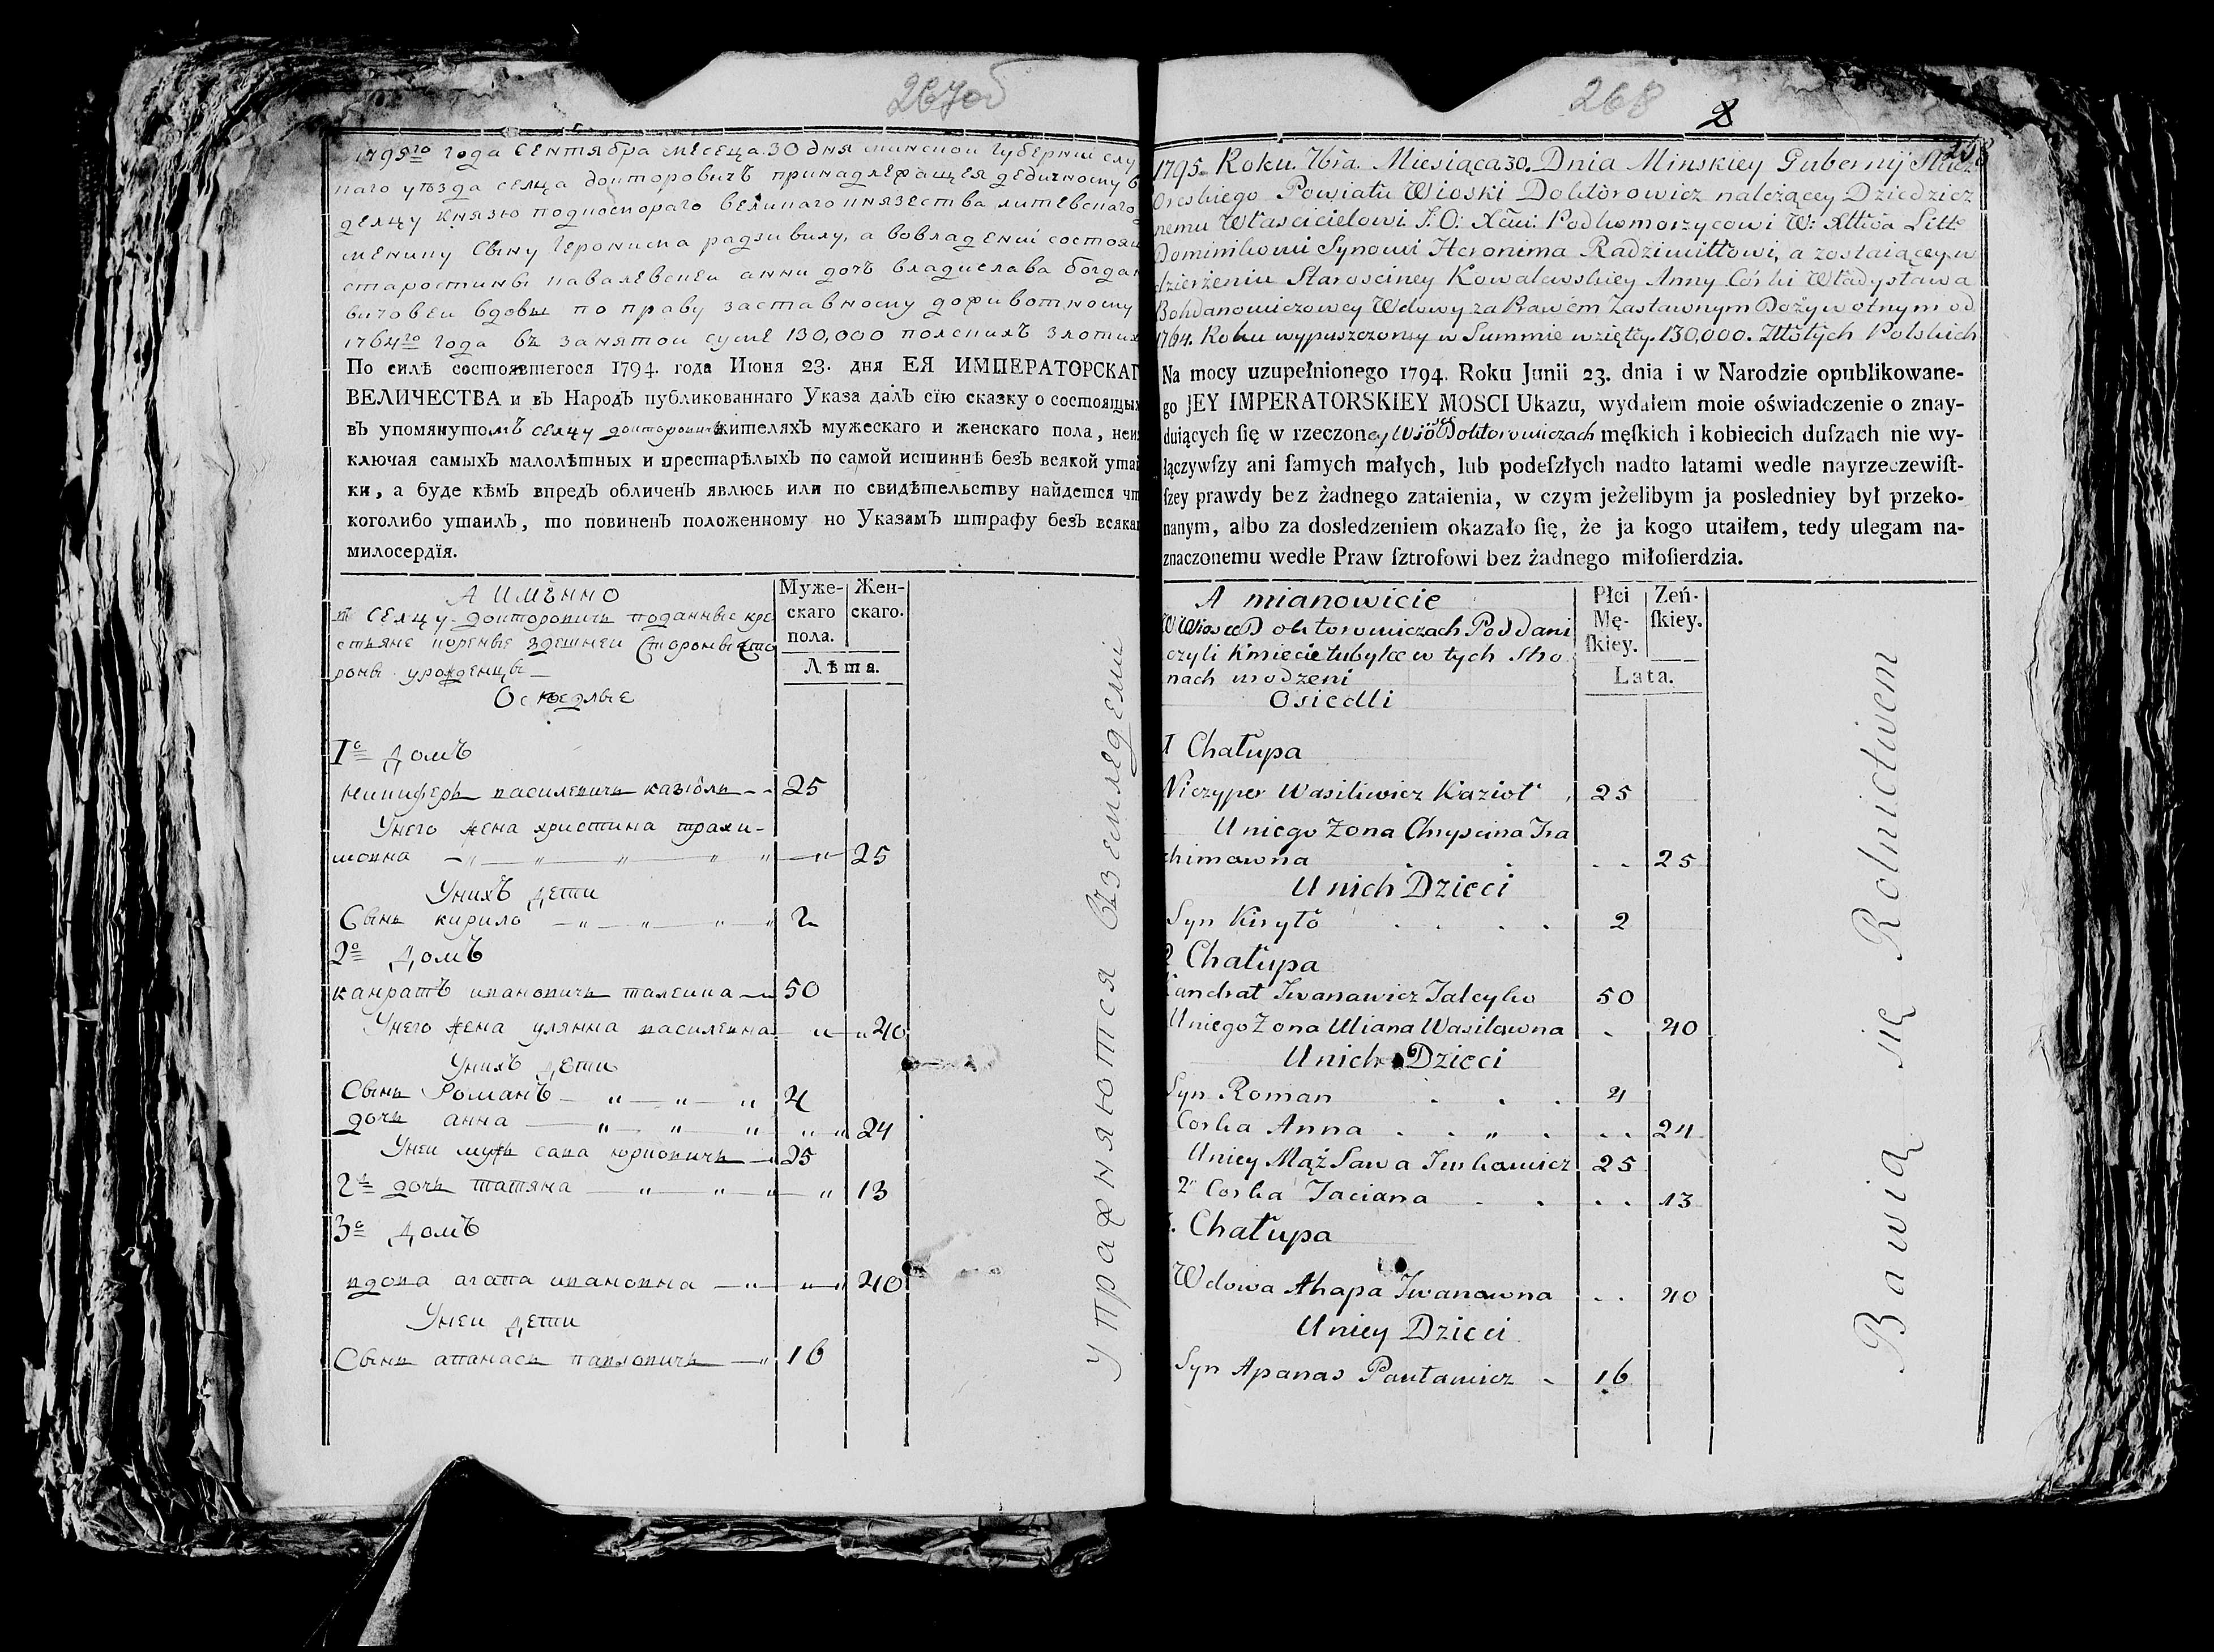 267об
1795го года сентября месеца 30 дня минской губернии слу
наго уѣзда селца докторовичъ принадлежащея дедичному в
делцу князю подкомораго великаго князества литевскаго
менику сыну Героныма радзивилу, а вовладении состоя
старостины кавалевскей анны дочъ владислава богда
вичовеи вдовы по праву заставному доживотному
1764го года въ занятои суме 130,000 полскихъ злотих
По силѣ состоявшегося 1794. года Июня 23. дня ЕЯ ИМПЕРАТОРСКАГ
ВЕЛИЧЕСТВА и въ Народъ публикованнаго Указа далъ сїю сказку о состоящых
въ упомянутомъ селцу докторовичъ жителяхъ мужескаго и женскаго пола, неис
ключая самыхъ малолѣтныхъ и престарѣлыхъ по самой истиннѣ безъ всякой утаи
ки, а буде кѣмъ впредъ обличенъ явлюсь или по свидѣтельству найдется чт
коголибо утаилъ, то повиненъ положенному по Указамъ штрафу безъ всяка
милосердїя.
А имѣнно
въ селцу докторовичъ поданные кре
стьяне коренные здешней стороны сто
роны урожденцы
Оседлые
Муже-
скаго
пола.
Жен-
скаго.
Лѣта.
1е домъ
ничиферъ василевичъ казіолъ 25
Унего жена христина трахи-
мовна 25
Унихъ дети
Сынъ кирило 2
2е домъ
канратъ ивановичъ талейка 50
Унего жена уляна василевна 40
Унихъ дети
Сынъ Романъ 4
дочъ анна 24
Унеи мужъ сава юрковичъ 25
2я дочъ татяна 13
3е домъ
вдова агапа ивановна 40
Унеи дети
Сынъ апанасъ павловичъ 16
Упражняются въземледеліи
268
1795. Roku. 7bra. Miesiąca 30. Dnia Minskiey Gubernij Słuc
Oreskiego Powiatu Wioski Doktorowicz należącey Dziedzicz
nemu Włascicielowi J.O: Xciu: Podkomorzycowi W: Xttwa Litt
Dominikowi Synowi Heronima Radziwiłłowi, a zostaiącey w
dzierżeniu Starosciney Kowalewskiey Anny Córki Władysława
Bohdanowiczowey Wdowy za Prawem Zastawnym Dożywotnym od
1764. Roku wypuszczoney w Summie wziętey 130,000. Złotych Polskich
Na mocy uzupełnionego 1794. Roku Junii 23. dnia i w Narodzie opublikowane-
go JEY IMPERATORSKIEY MOSCI Ukazu, wydałem moie oświadczenie o znay-
duiących ſię w rzeczoney Wiosce Doktorowiczach męſkich i kobiecich duſzach nie wy-
łączywſzy ani ſamych małych, lub podeſzłych nadto latami wedle nayrzeczewiſt-
ſzey prawdy bez żadnego zataienia, w czym jeżelibym ja posledniey był przeko-
nanym, albo za dosledzeniem okazało ſię, że ja kogo utaiłem, tedy ulegam na-
znaczonemu wedle Praw ſztrofowi bez żadnego miłoſierdzia.
A mianowicie
W Wiosce Doktorowiczach Poddani
czyli Kmiecie tubylce w tych Stro
nach urodzeni
Osiedli
Płci
Mę-
ſkiey.
Zeń-
ſkiey.
Lata.
1 Chałupa
Niczyper Wasiliewicz Kazioł 25
Uniego Żona Chryscina Tra
chimawna 25
Unich Dzieci
Syn Kiryło 2
2 Chałupa
Kandrat Iwanawicz Taleyko 50
Uniego Żona Uliana Wasilawna 40
Unich Dzieci
Syn Roman 4
Corka Anna 24
Uniey Mąż Sawa Jurkawicz 25
2 Corka Taciana 13
3. Chałupa
Wdowa Ahapa Iwanawna 40
Uniey Dzieci
Syn Apanas Pauławicz 16
Bawią się Rolnictwem